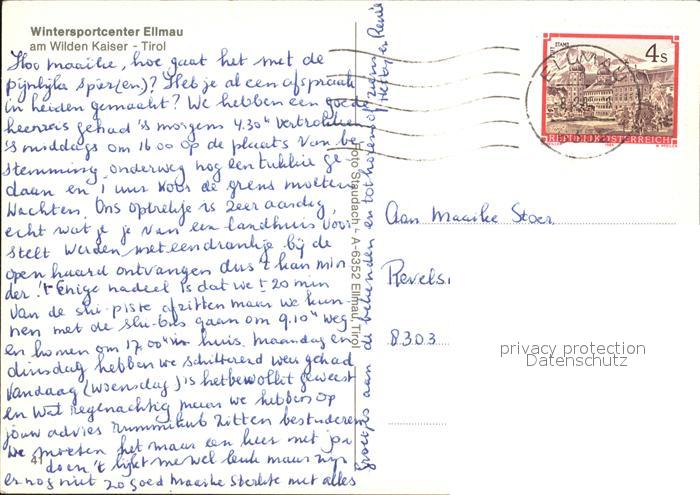 Wintersportcenter Ellmau
am Wilden Kaiser - Tirol
Hoo maaike, hoe gaat het met de
pijnlijke spier(en)? Heb je al een afspraak
in heiden gemaakt? We hebben een goede
heenreis gehad 's morgens 4.30 u vertrokken
's middags om 16.00 op de plaats van be-
stemming, onderweg nog een tukkie ge
daan en 1 uur voor de grens moeten
wachten. Ons optrekje is zeer aardig,
echt wat je je van een landhuis voor-
stelt werden met een drankje bij de
open haard ontvangen dus 't kan min
der. 't Enige nadeel is dat we ± 20 min
van de ski-piste afzitten maar we kun-
nen met de ski-bus gaan om 9.10 u weg
en komen om 17.00 u in huis. Maandag en
dinsdag hebben we schitterend weer gehad
Vandaag (woensdag) is het bewolkt geweest
en wat regenachtig maar we hebben op
jouw advies rummikub zitten bestuderen
We moeten het maar een keer met jou
doen 't lijkt me wel leuk maar zijn
er nog niet zo goed Maaike sterkte met alles
groetjes aan de bekenden en tot horens of ziens
Foto Staudach - A-6352 Ellmau, Tirol
STIFT STAMS
4 S
REPUBLIK ÖSTERREICH
ELLMAU
Aan Maaike Stoer
Revels.
8303
privacy protection
Datenschutz